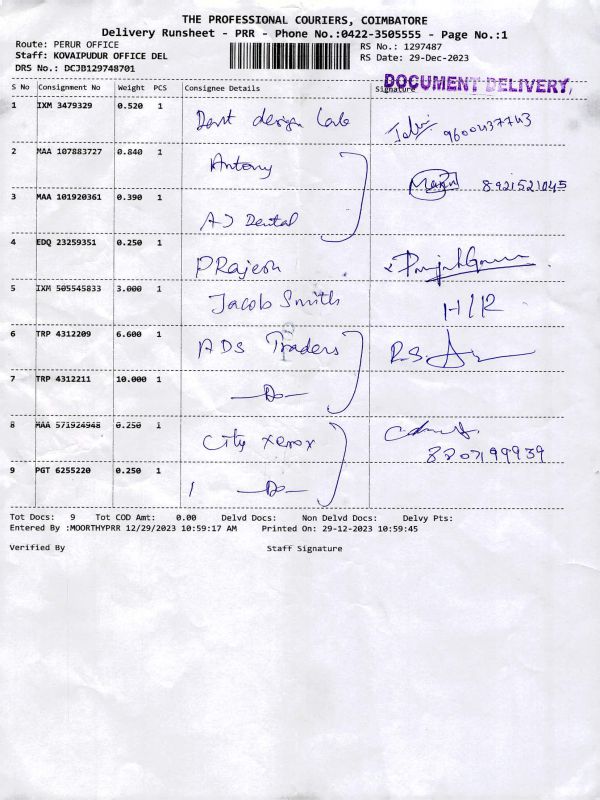 THE PROFESSIONAL COURIERS, COIMBATORE
Delivery Runsheet - PRR - Phone No.:0422-3505555 - Page No.:1
Route: PERUR OFFICE RS No.: 1297487
Staff: KOVAIPUDUR OFFICE DEL RS Date: 29-Dec-2023
DRS No.: DCJB129748701
DOCUMENT DELIVERY,
S No Consignment No Weight PCS Consignee Details Signature
1 IXM 3479329 0.520 1 Dent design Lab 9600437743
2 MAA 107883727 0.840 1 Antony
8921521045
3 MAA 101920361 0.390 1 AJ Dental
4 EDQ 23259351 0.250 1 P Rajesh
5 IXM 505545833 3.000 1 Jacob Smith H/R
6 TRP 4312209 6.600 1 ADS Traders R.S.
7 TRP 4312211 10.000 1 —Do—
8 MAA 571924948 0.250 1 City xerox
9 PGT 6255220 0.250 1 —Do—
Tot Docs: 9 Tot COD Amt: 0.00 Delvd Docs: Non Delvd Docs: Delvy Pts:
Entered By :MOORTHYPRR 12/29/2023 10:59:17 AM Printed On: 29-12-2023 10:59:45
Verified By Staff Signature